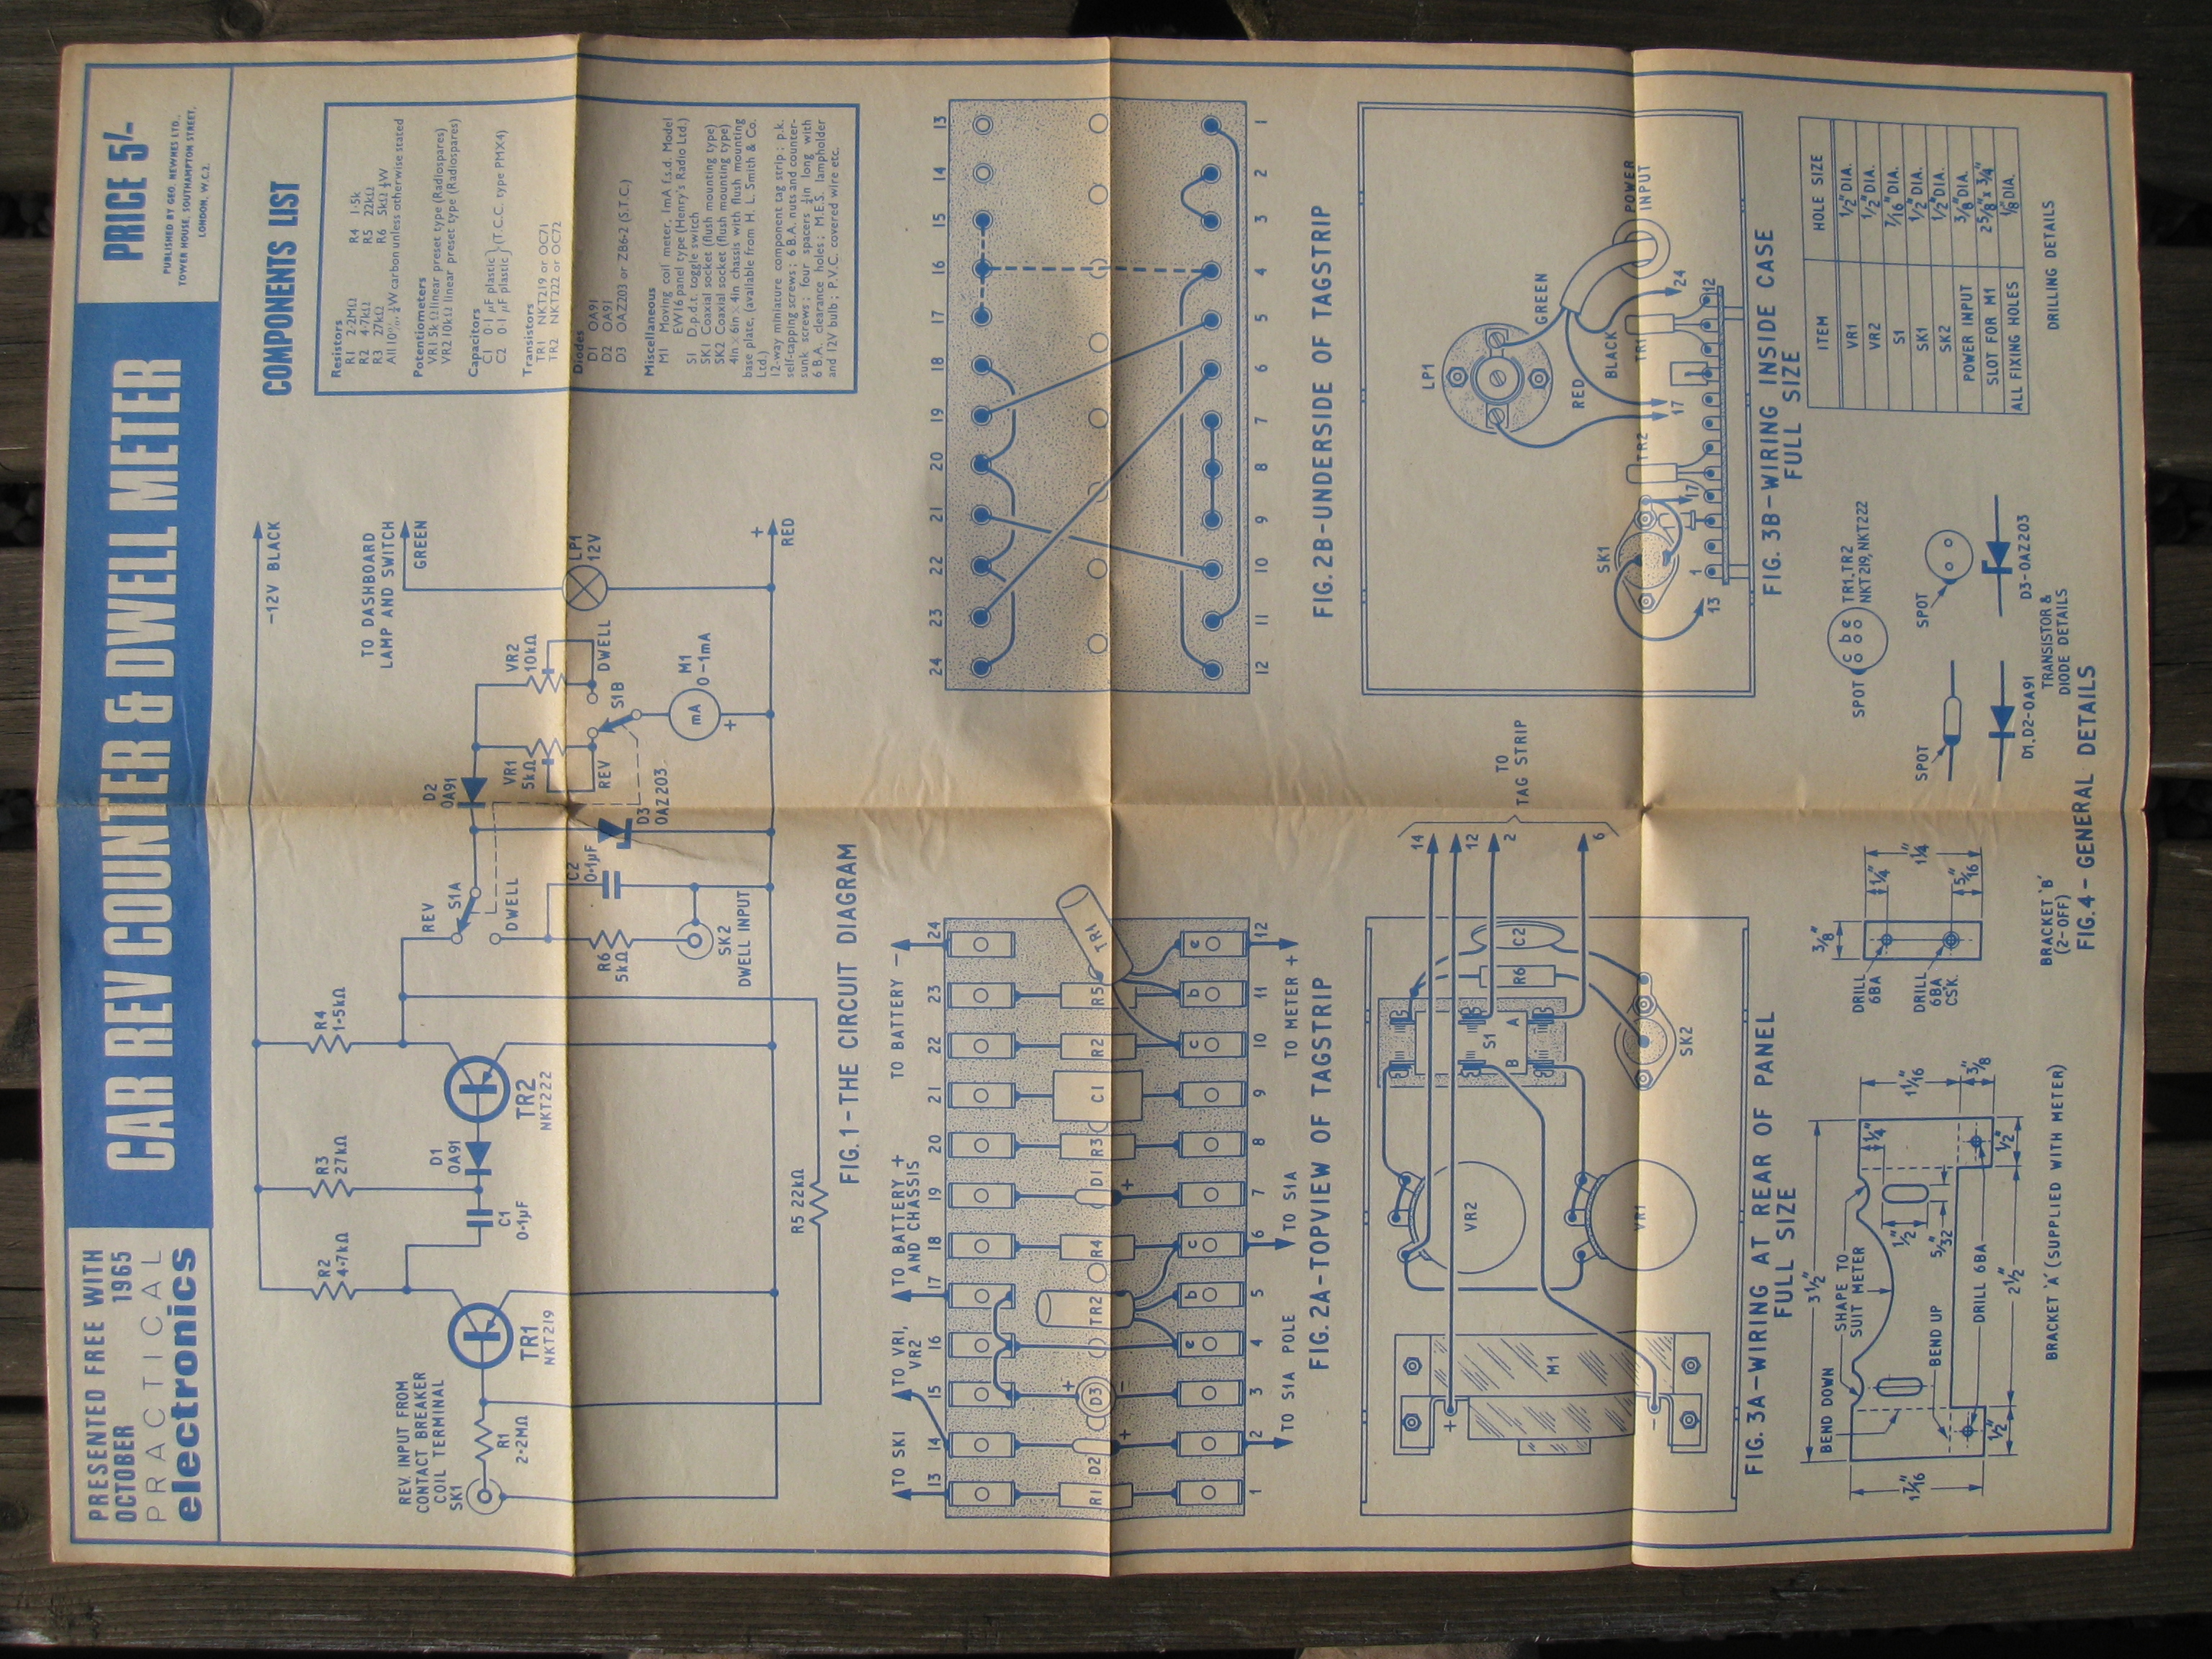 PRESENTED FREE WITH
OCTOBER 1965
PRACTICAL
electronics
CAR REV COUNTER & DWELL METER
PRICE 5/-
PUBLISHED BY GEO. NEWNES LTD.,
TOWER HOUSE, SOUTHAMPTON STREET,
LONDON, W.C.2.
-12V BLACK
TO DASHBOARD
LAMP AND SWITCH
GREEN
R2
4·7kΩ
R3
27kΩ
R4
1·5kΩ
REV. INPUT FROM
CONTACT BREAKER
COIL TERMINAL
SK1
R1
2·2MΩ
TR1
NKT219
C1
0·1μF
D1
OA91
TR2
NKT222
REV
S1A
DWELL
D2
OA91
VR1
5kΩ
VR2
10kΩ
REV
S1B
DWELL
LP1
12V
R6
5kΩ
C2
0·1μF
D3
OAZ203
mA
+
M1
0-1mA
+
RED
SK2
DWELL INPUT
R5 22kΩ
FIG.1-THE CIRCUIT DIAGRAM
COMPONENTS LIST
Resistors
R1 2·2MΩ R4 1·5k
R2 4·7kΩ R5 22kΩ
R3 27kΩ R6 5kΩ ½W
All 10% ½W carbon unless otherwise stated
Potentiometers
VR1 5kΩ linear preset type (Radiospares)
VR2 10kΩ linear preset type (Radiospares)
Capacitors
C1 0·1 μF plastic
C2 0·1 μF plastic } (T.C.C. type PMX4)
Transistors
TR1 NKT219 or OC71
TR2 NKT222 or OC72
Diodes
D1 OA91
D2 OA91
D3 OAZ203 or ZB6·2 (S.T.C.)
Miscellaneous
M1 Moving coil meter, 1mA f.s.d. Model
EW16 panel type (Henry's Radio Ltd.)
S1 D.p.d.t. toggle switch
SK1 Coaxial socket (flush mounting type)
SK2 Coaxial socket (flush mounting type)
4in × 6in × 4in chassis with flush mounting
base plate, (available from H. L. Smith & Co.
Ltd.)
12-way miniature component tag strip; p.k.
self-tapping screws; 6 B.A. nuts and counter-
sunk screws; four spacers ½in long with
6 B.A. clearance holes; M.E.S. lampholder
and 12V bulb; P.V.C. covered wire etc.
TO SK1
TO VR1,
VR2
TO BATTERY +
AND CHASSIS
TO BATTERY -
13 14 15 16 17 18 19 20 21 22 23 24
R1 D2 + D3 + - TR2 R4 D1 + R3 C1 R2 R5 TR1
e b c c b e
1 2 3 4 5 6 7 8 9 10 11 12
TO S1A POLE
TO S1A
TO METER +
FIG. 2A-TOPVIEW OF TAGSTRIP
24 23 22 21 20 19 18 17 16 15 14 13
12 11 10 9 8 7 6 5 4 3 2 1
FIG. 2B-UNDERSIDE OF TAGSTRIP
+
M1
-
VR2
VR1
S1
B A
R6
C2
SK2
14
12
2
6
TO
TAG STRIP
FIG. 3A-WIRING AT REAR OF PANEL
FULL SIZE
SK1
LP1
GREEN
RED
BLACK
POWER
INPUT
TR2
TR1
17
17
24
13
1
12
FIG. 3B-WIRING INSIDE CASE
FULL SIZE
3½"
BEND DOWN
SHAPE TO
SUIT METER
BEND UP
DRILL 6BA
¼"
½"
5/32"
1 1/16"
1 1/16"
3/8"
½"
2½"
½"
BRACKET 'A' (SUPPLIED WITH METER)
3/8"
¼"
1¼"
5/16"
DRILL
6BA
DRILL
6BA
CSK.
BRACKET 'B'
(2-OFF)
SPOT
c b e
TR1, TR2
NKT219, NKT222
SPOT
D1, D2-OA91
SPOT
D3-OAZ203
TRANSISTOR &
DIODE DETAILS
ITEM HOLE SIZE
VR1 ½" DIA.
VR2 ½" DIA.
S1 7/16" DIA.
SK1 ½" DIA.
SK2 ½" DIA.
POWER INPUT 3/8" DIA.
SLOT FOR M1 2 5/8" x ¾"
ALL FIXING HOLES 1/8" DIA.
DRILLING DETAILS
FIG. 4 - GENERAL DETAILS